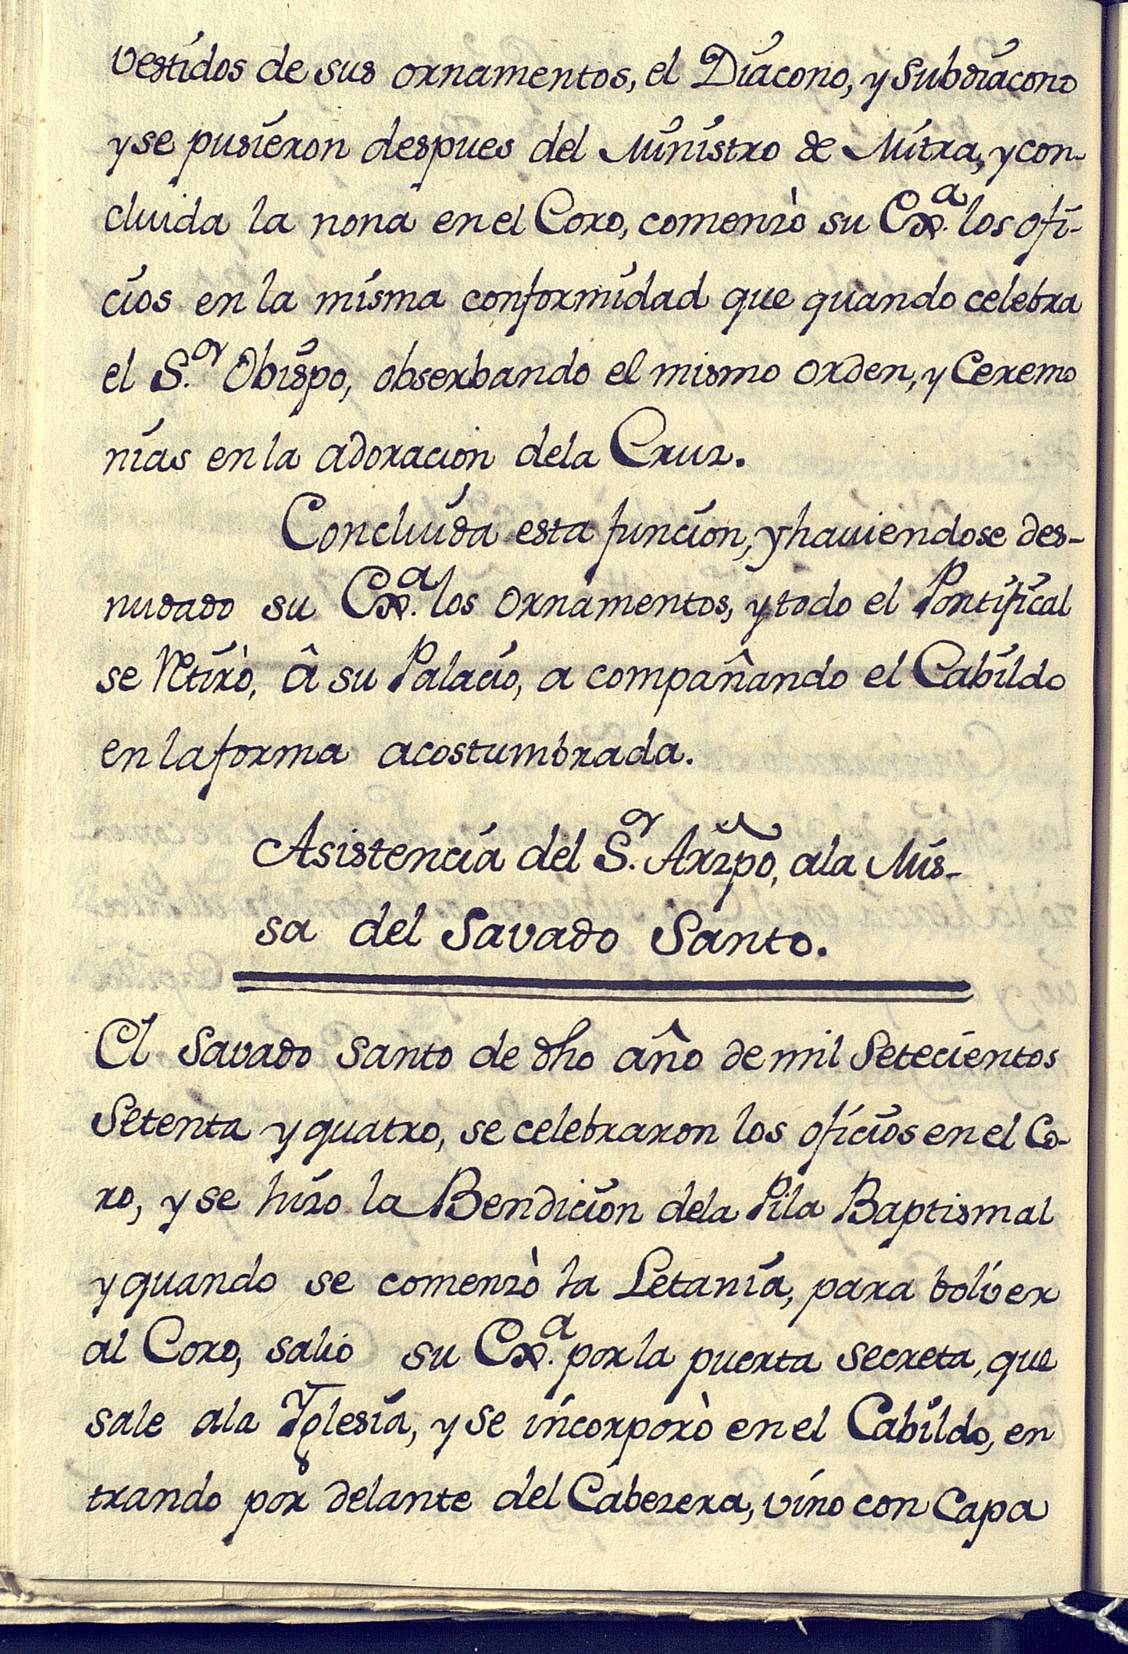 vestidos de sus ornamentos, el Diácono, y Subdiácono
y se pusieron despues del Ministro de Mitra, y con-
cluida la nona en el Coro, comenzò su Exª. los ofi-
cios en la misma conformidad que quando celebra
el S.or Obispo, obserbando el mismo orden, y Ceremo
nias en la adoracion dela Cruz.
Concluida esta funcion, y haviendose des-
nudado su Exª. los Ornamentos, y todo el Pontifical
se Retirò, â su Palacio, a compañando el Cabildo
en la forma acostumbrada.
Asistencia del S.or Arzpo, ala Mis-
sa del Savado Santo.
El Savado Santo de dho año de mil Setecientos
Setenta y quatro, se celebraron los oficios en el Co-
ro, y se hizo la Bendicion dela Pila Baptismal
y quando se comenzò la Letania, para bolver
al Coro, salió su Exª. por la puerta secreta, que
sale ala Yglesia, y se incorporò en el Cabildo, en
trando por delante del Cabezera, vino con Capa